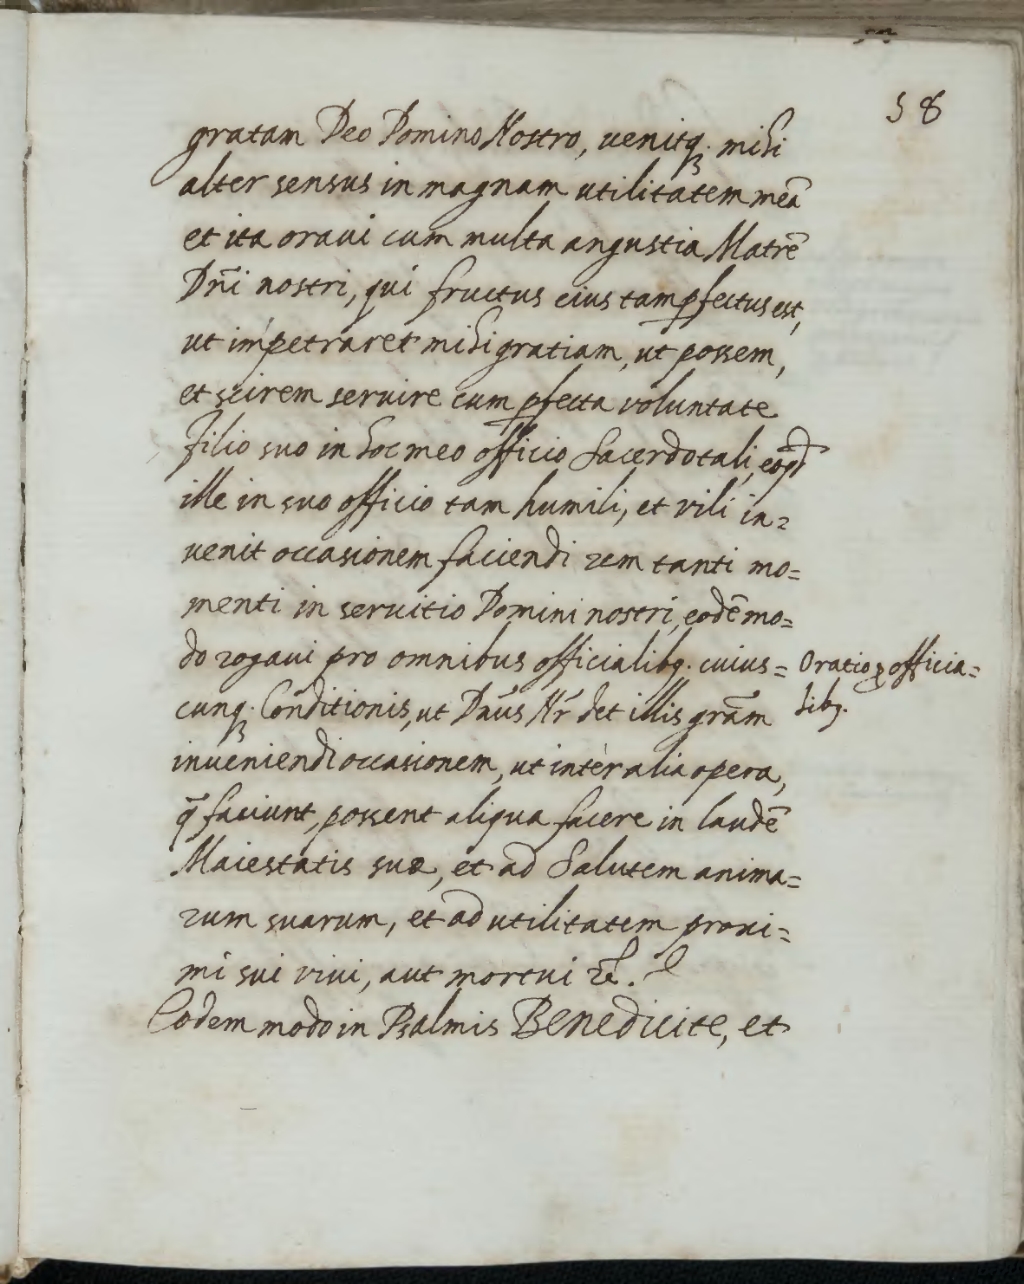 58
gratam Deo Domino Nostro, uenitq; mihi
alter sensus in magnam utilitatem meā
et ita oraui cum multa angustia Matrē
Dn̄i nostri, qui fructus eius tam ꝑfectus est,
ut impetraret mihi gratiam, ut possem,
et scirem seruire cum ꝑfecta voluntate
filio suo in hoc meo officio Sacerdotali, eoqd
ille in suo officio tam humili, et vili in=
uenit occasionem faciendi rem tanti mo=
menti in seruitio Domini nostri, eodē mo=
do rogaui pro omnibus officialibq. cuius=
cunq; Conditionis, ut Dn̄us Nr̄ det illis grām
inueniendi occasionem, ut inter alia opera,
q̄ faciunt, possent aliqua facere in laudē
Maiestatis suæ, et ad Salutem anima=
rum suarum, et ad utilitatem proxi=
mi sui viui, aut mortui &c.
Eodem modo in Psalmis Benedicite, et
Oratio ꝓ officia=
libq.